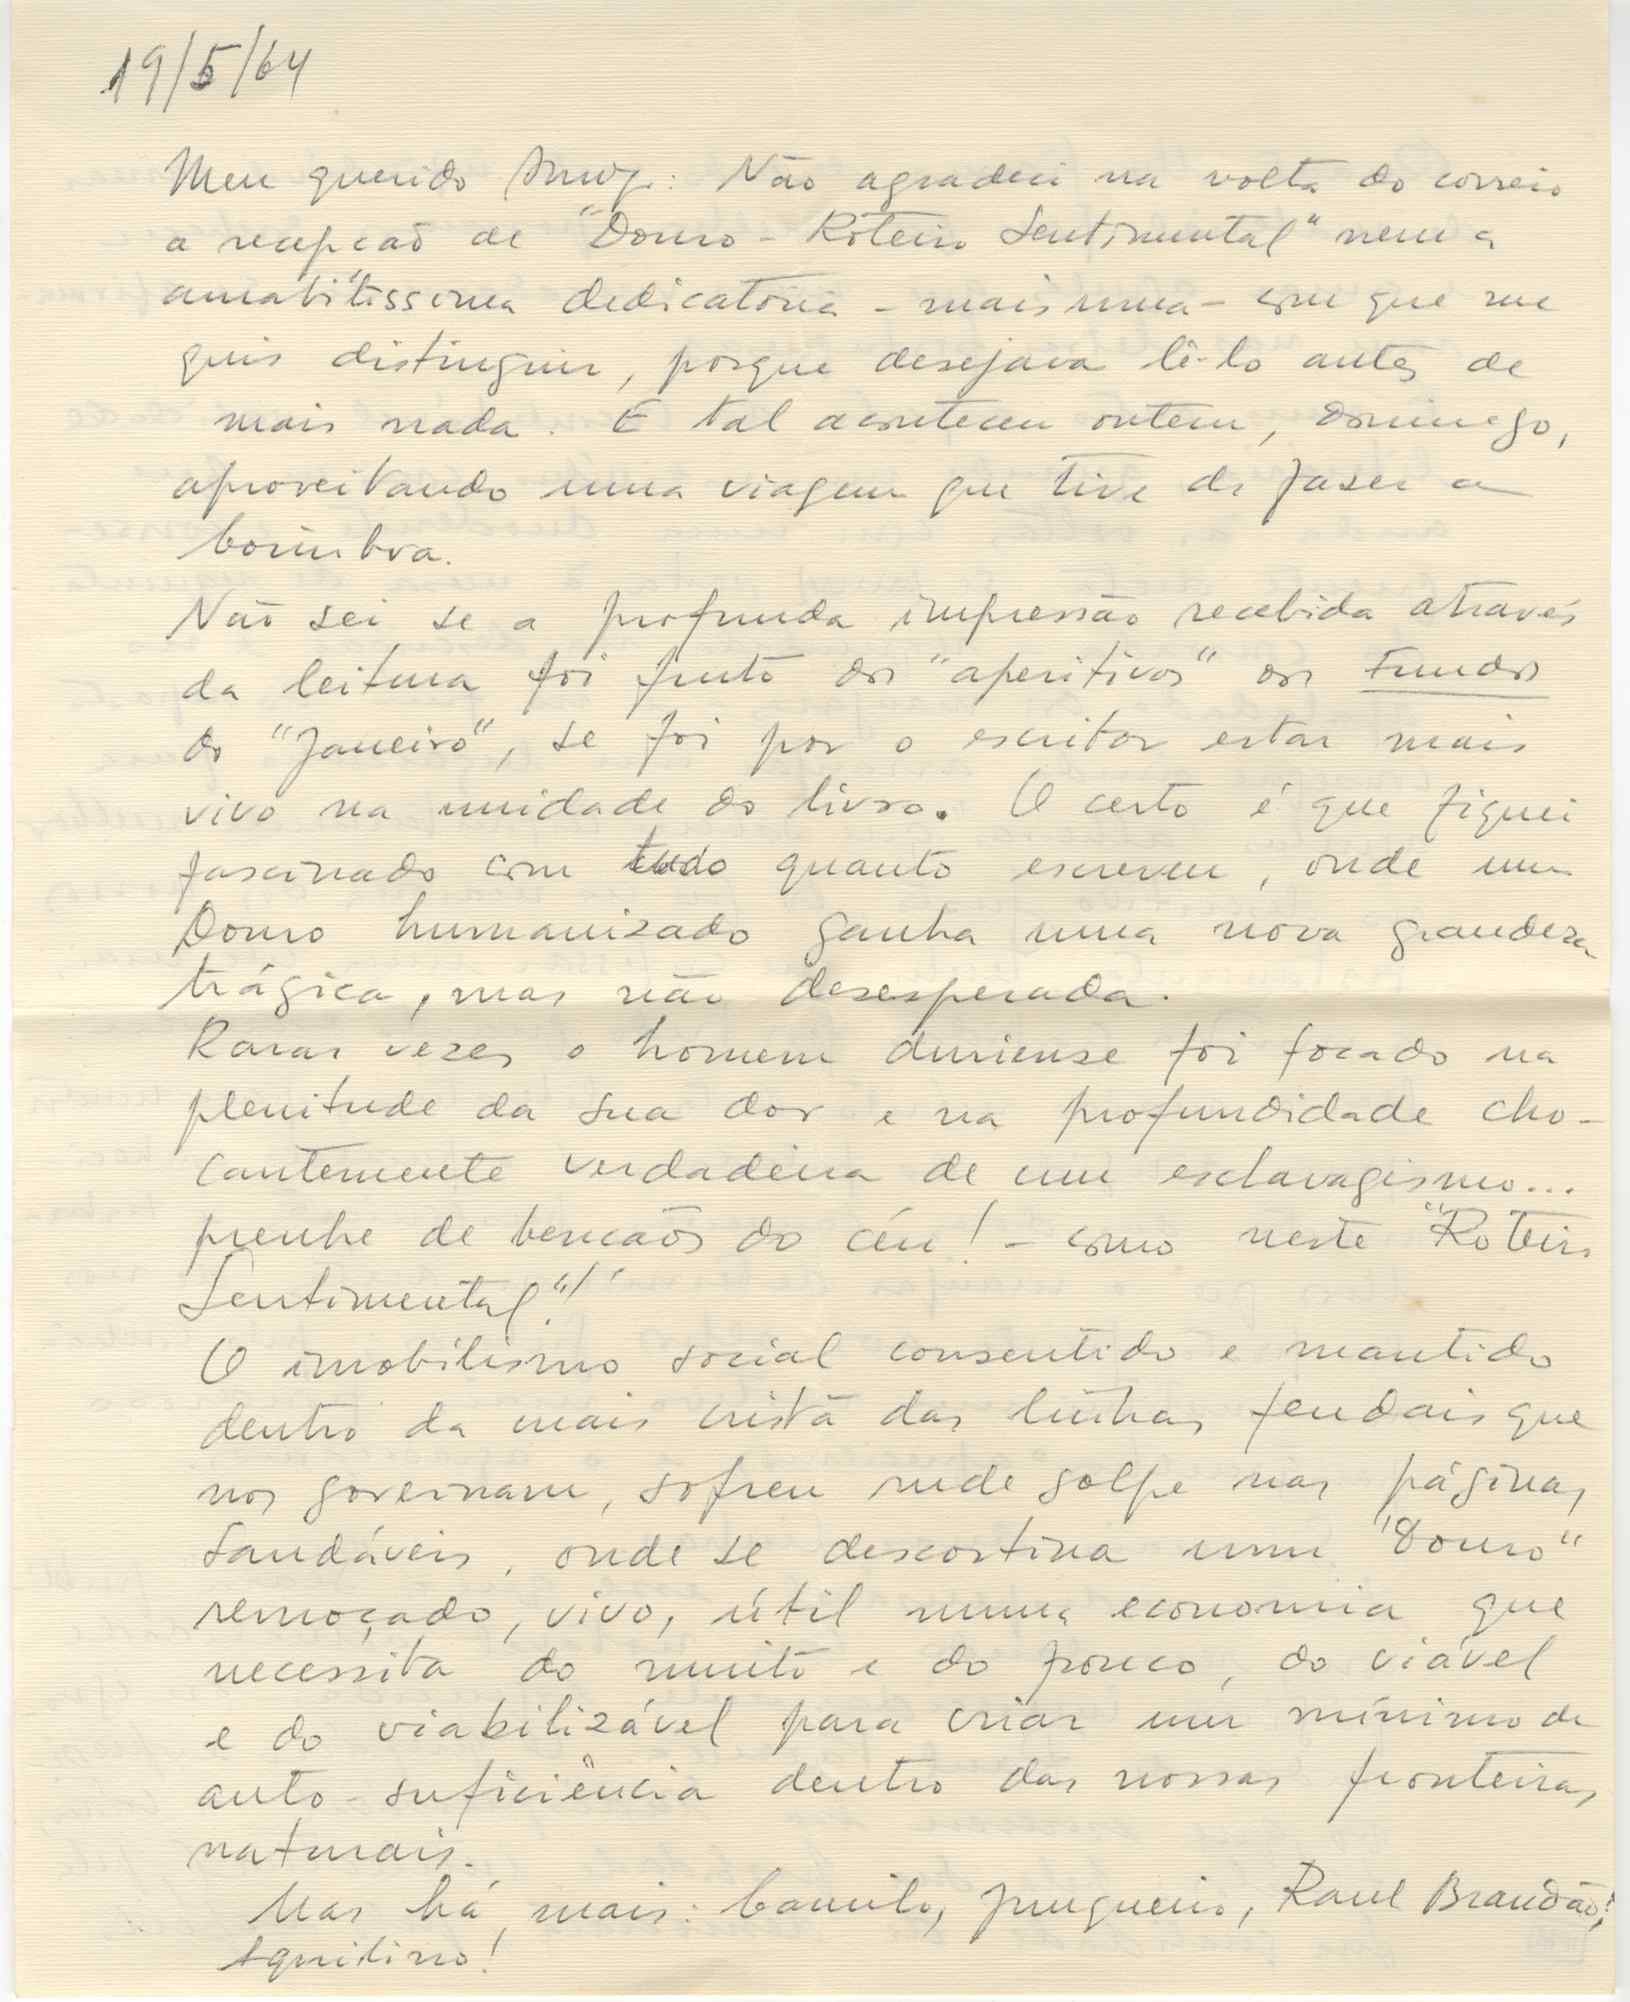 19/5/64
Meu querido Amigo: Não agradeci na volta do correio
a recepção de "Douro - Roteiro Sentimental" nem a
amabilissima dedicatória - mais uma - com que me
quis distinguir, porque desejava lê-lo antes de
mais nada. E tal aconteceu ontem, domingo,
aproveitando uma viagem que tive de fazer a
Coimbra.
Não sei se a profunda impressão recebida através
da leitura foi fruto dos "aperitivos" dos Fundos
do "Janeiro", se foi por o escritor estar mais
vivo na unidade do livro. O certo é que fiquei
fascinado com tudo quanto escreveu, onde um
Douro humanizado ganha uma nova grandeza
trágica, mas não desesperada.
Raras vezes o homem duriense foi focado na
plenitude da sua dor e na profundidade cho-
cantemente verdadeira de um esclavagismo...
prenhe de bençãos do céu! - como neste "Roteiro
Sentimental"!
O imobilismo social consentido e mantido
dentro da mais cristã das linhas feudais que
nos governam, sofreu rude golpe nas páginas
saudáveis, onde se descortina um "Douro"
remoçado, vivo, útil numa economia que
necessita do muito e do pouco, do viável
e do viabilizável para criar um mínimo de
auto-suficiência dentro das nossas fronteiras
naturais.
Mas há mais: Camilo, Junqueiro, Raul Brandão,
Aquilino!